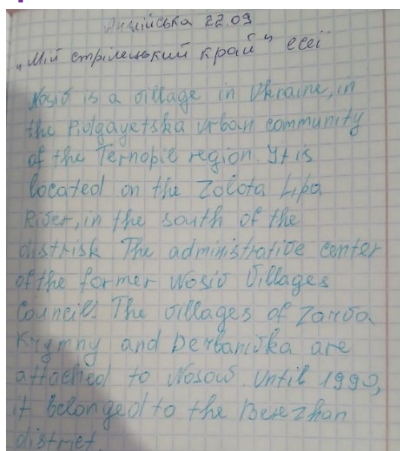 Англійська 22.09
"Мій стрілецький край" есеї
Nosiv is a village in Ukraine, in
the Pidgayetska urban community
of the Ternopil region. It is
located on the Zolota Lipa
River, in the south of the
distrisk The administrative center
of the former Nosiv Villages
Council. The villages of
Krymny and are
attached to Nosow. Until 1990,
it belonged to the Berezhan
district.